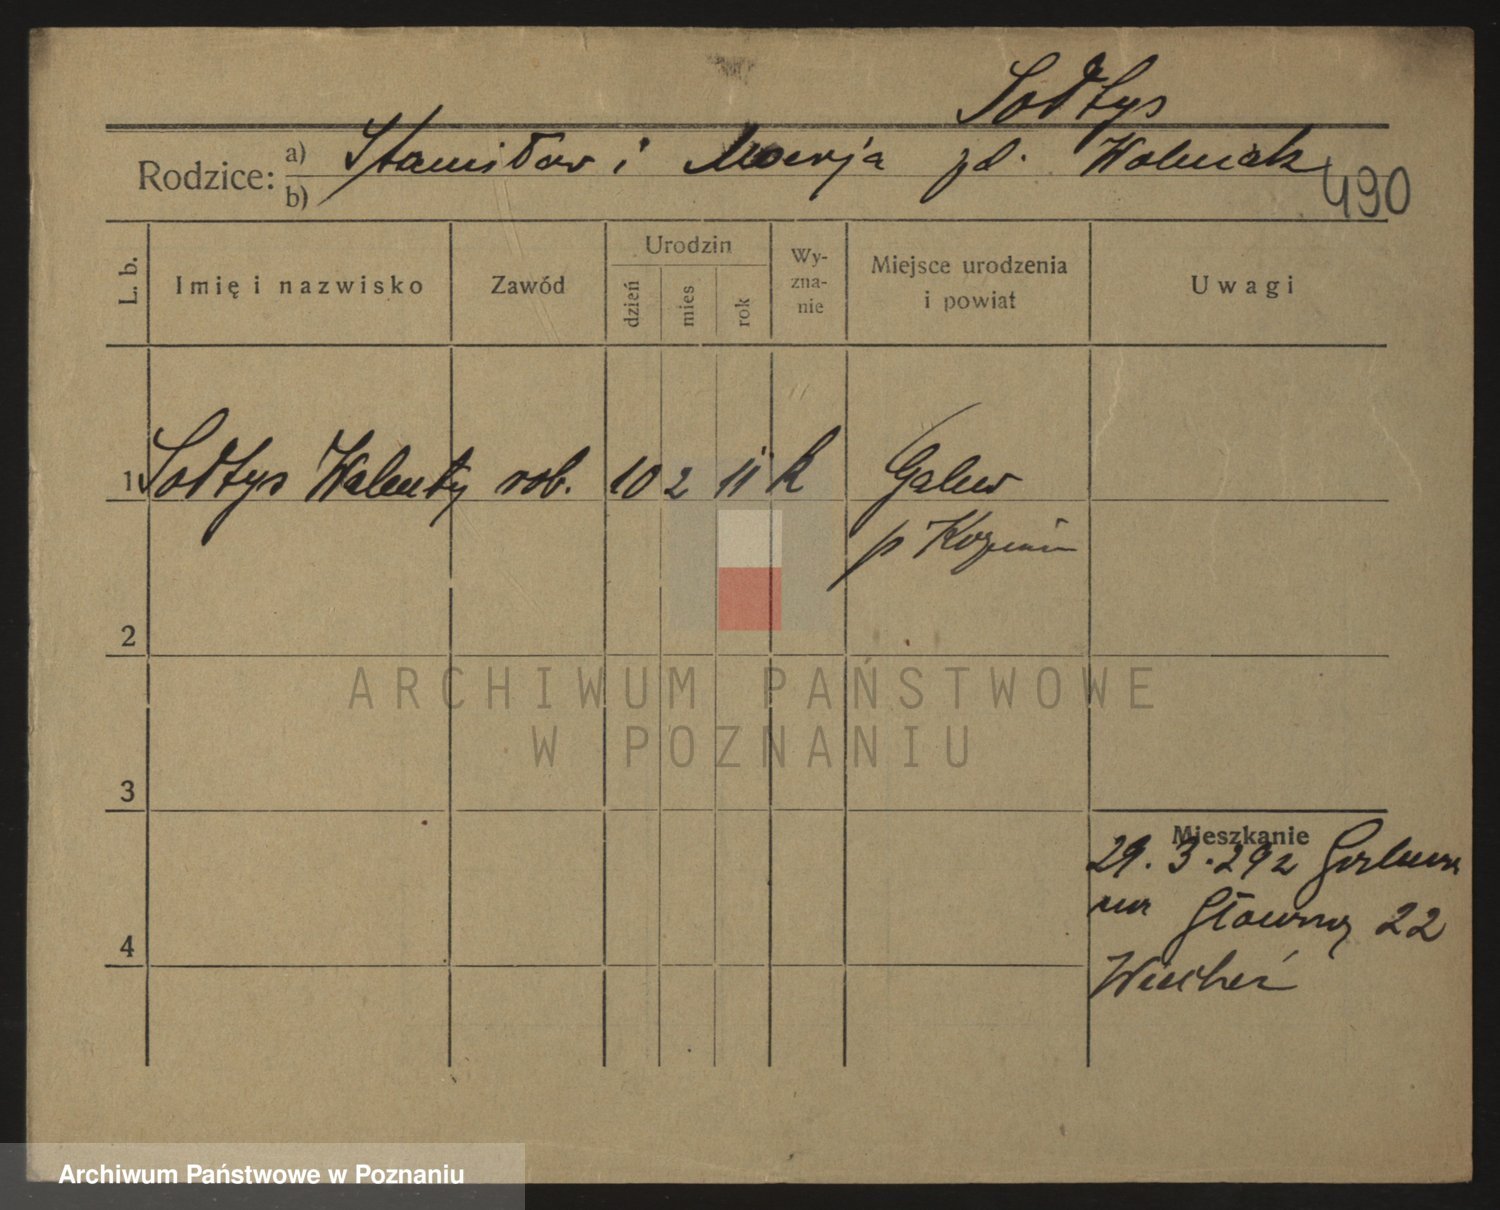 Sołtys
Rodzice: a) Stanisław i Marja zd. Walczak
b)
490
L. b. Imię i nazwisko Zawód Urodzin dzień mies rok Wy-zna-nie Miejsce urodzenia i powiat Uwagi
1 Sołtys Walenty rob. 10 2 11 k Galew
p Koźmin
2
ARCHIWUM PAŃSTWOWE
W POZNANIU
3
Mieszkanie
29. 3. 29 z
4 Główną 22
Archiwum Państwowe w Poznaniu